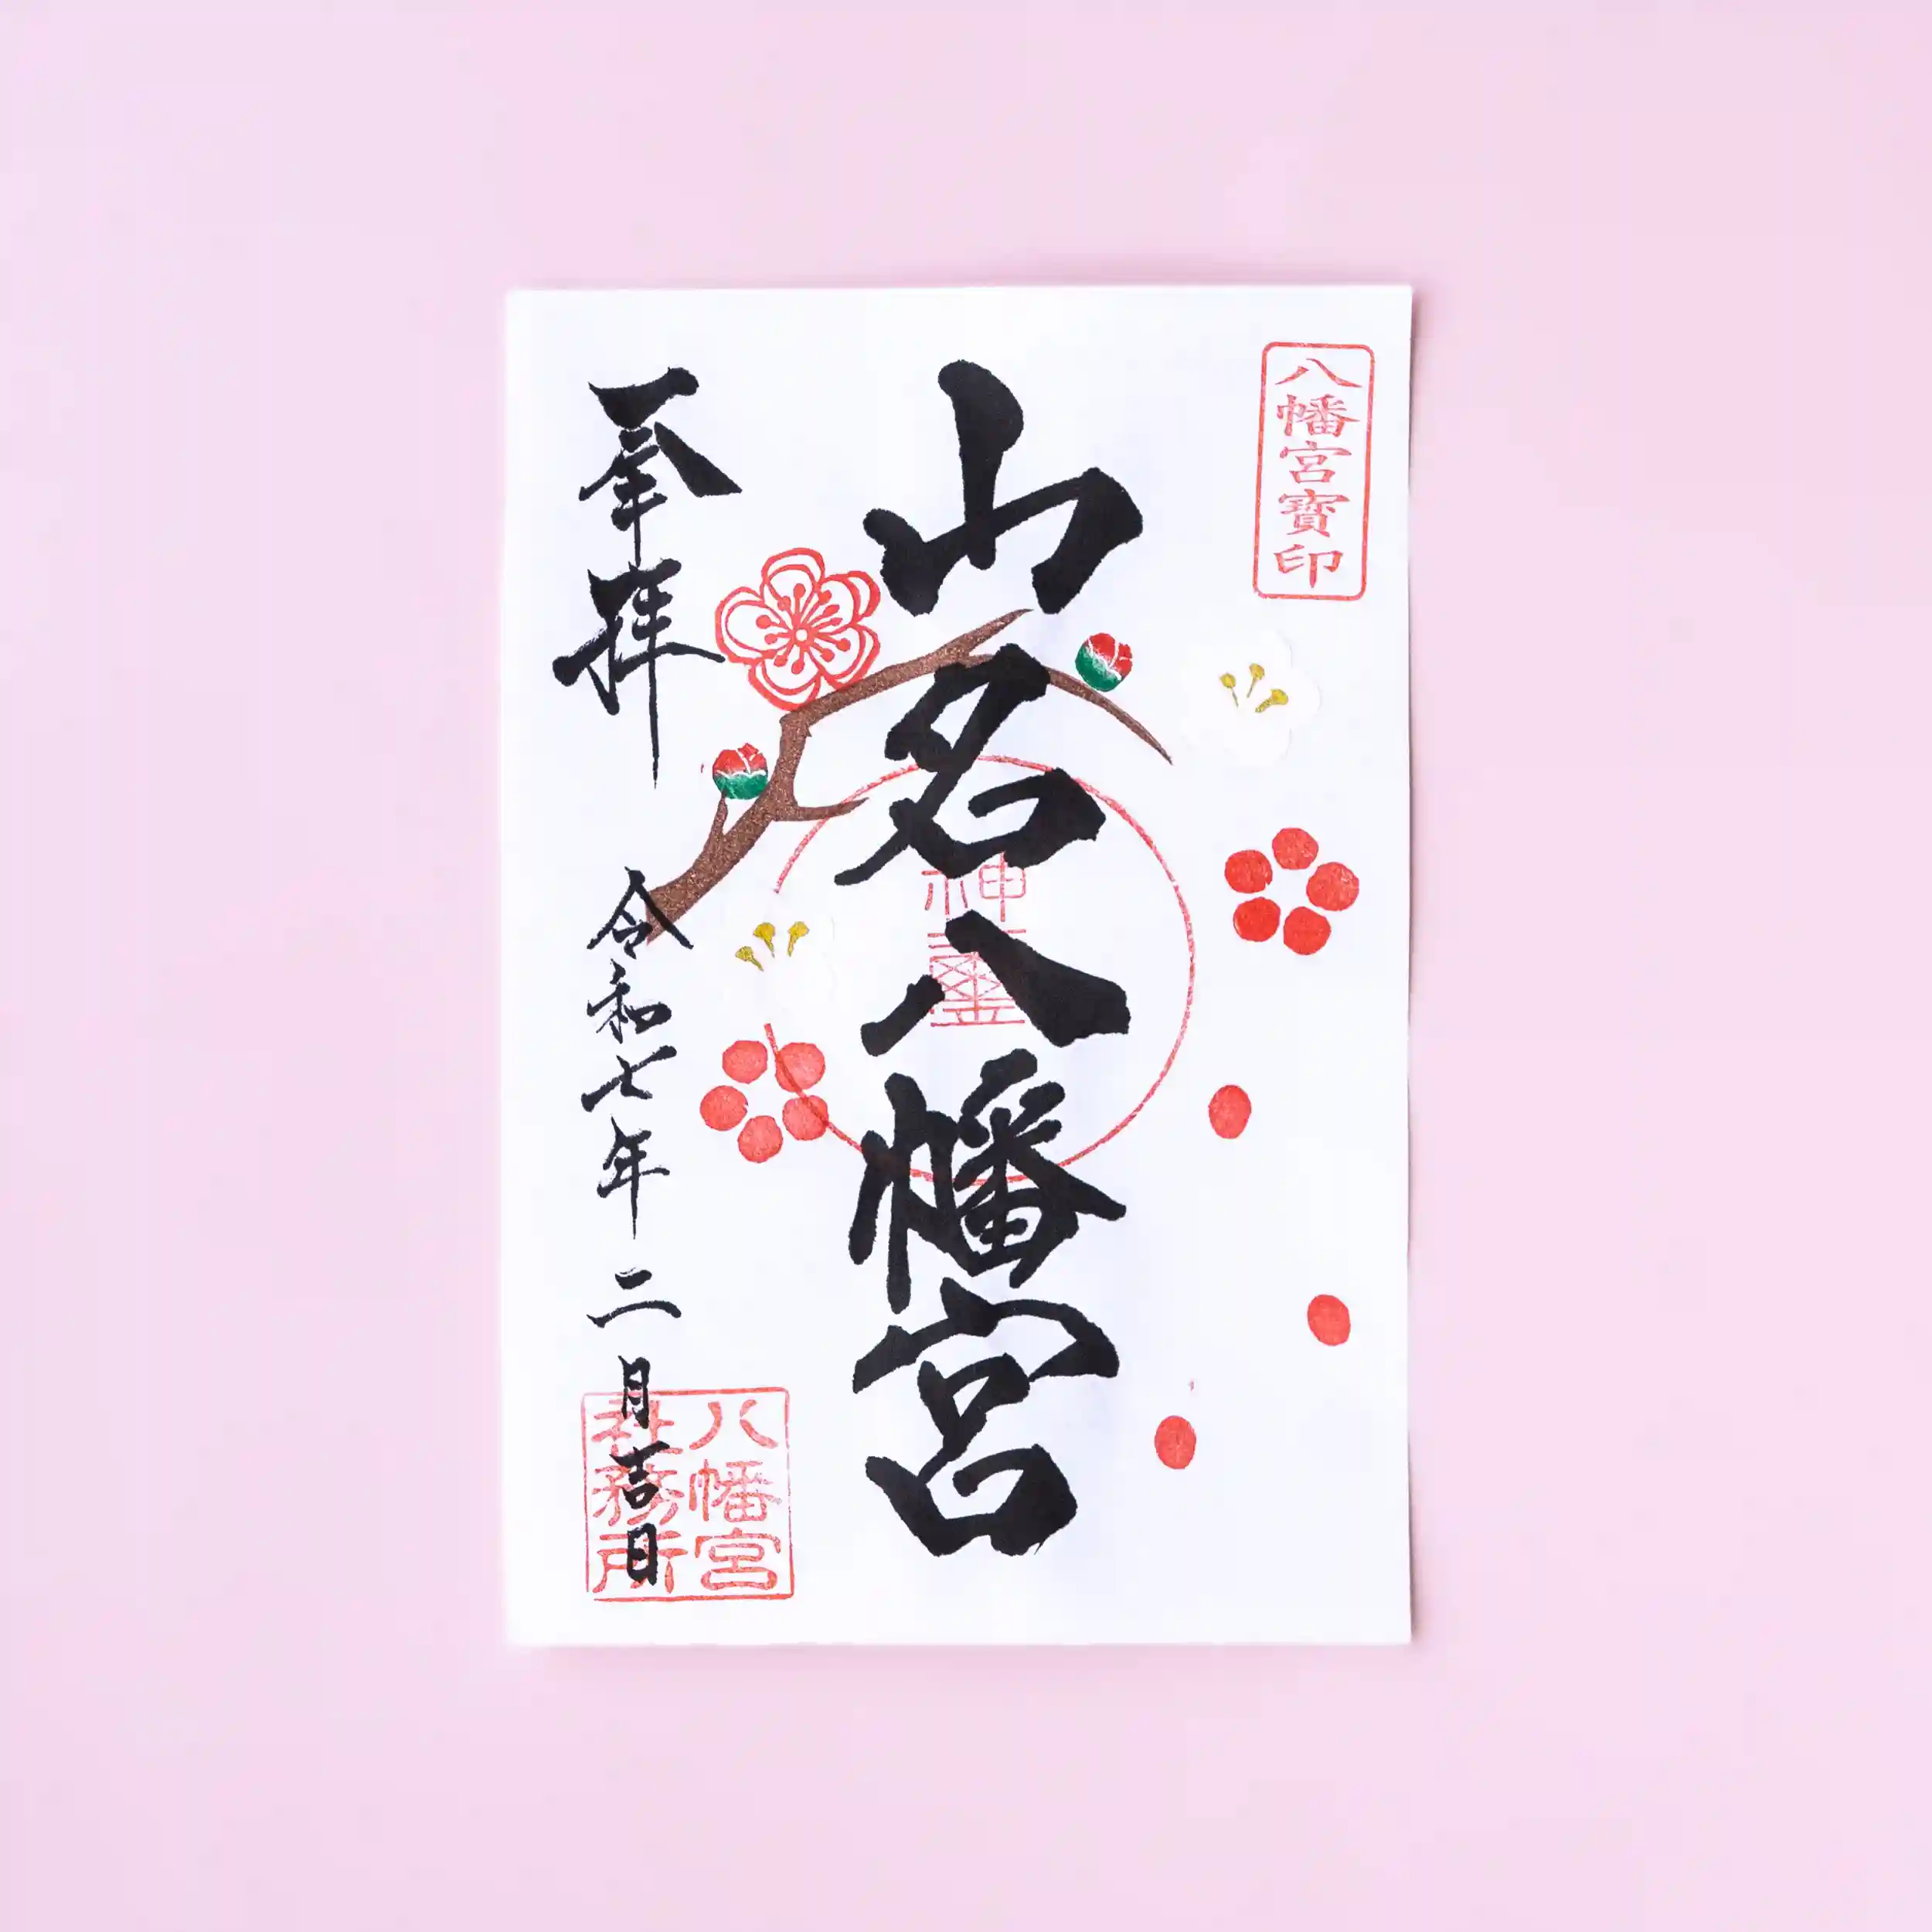 八幡宮寳印
山名八幡宮
神璽
奉拝
令和七年二月吉日
八幡宮
社務所